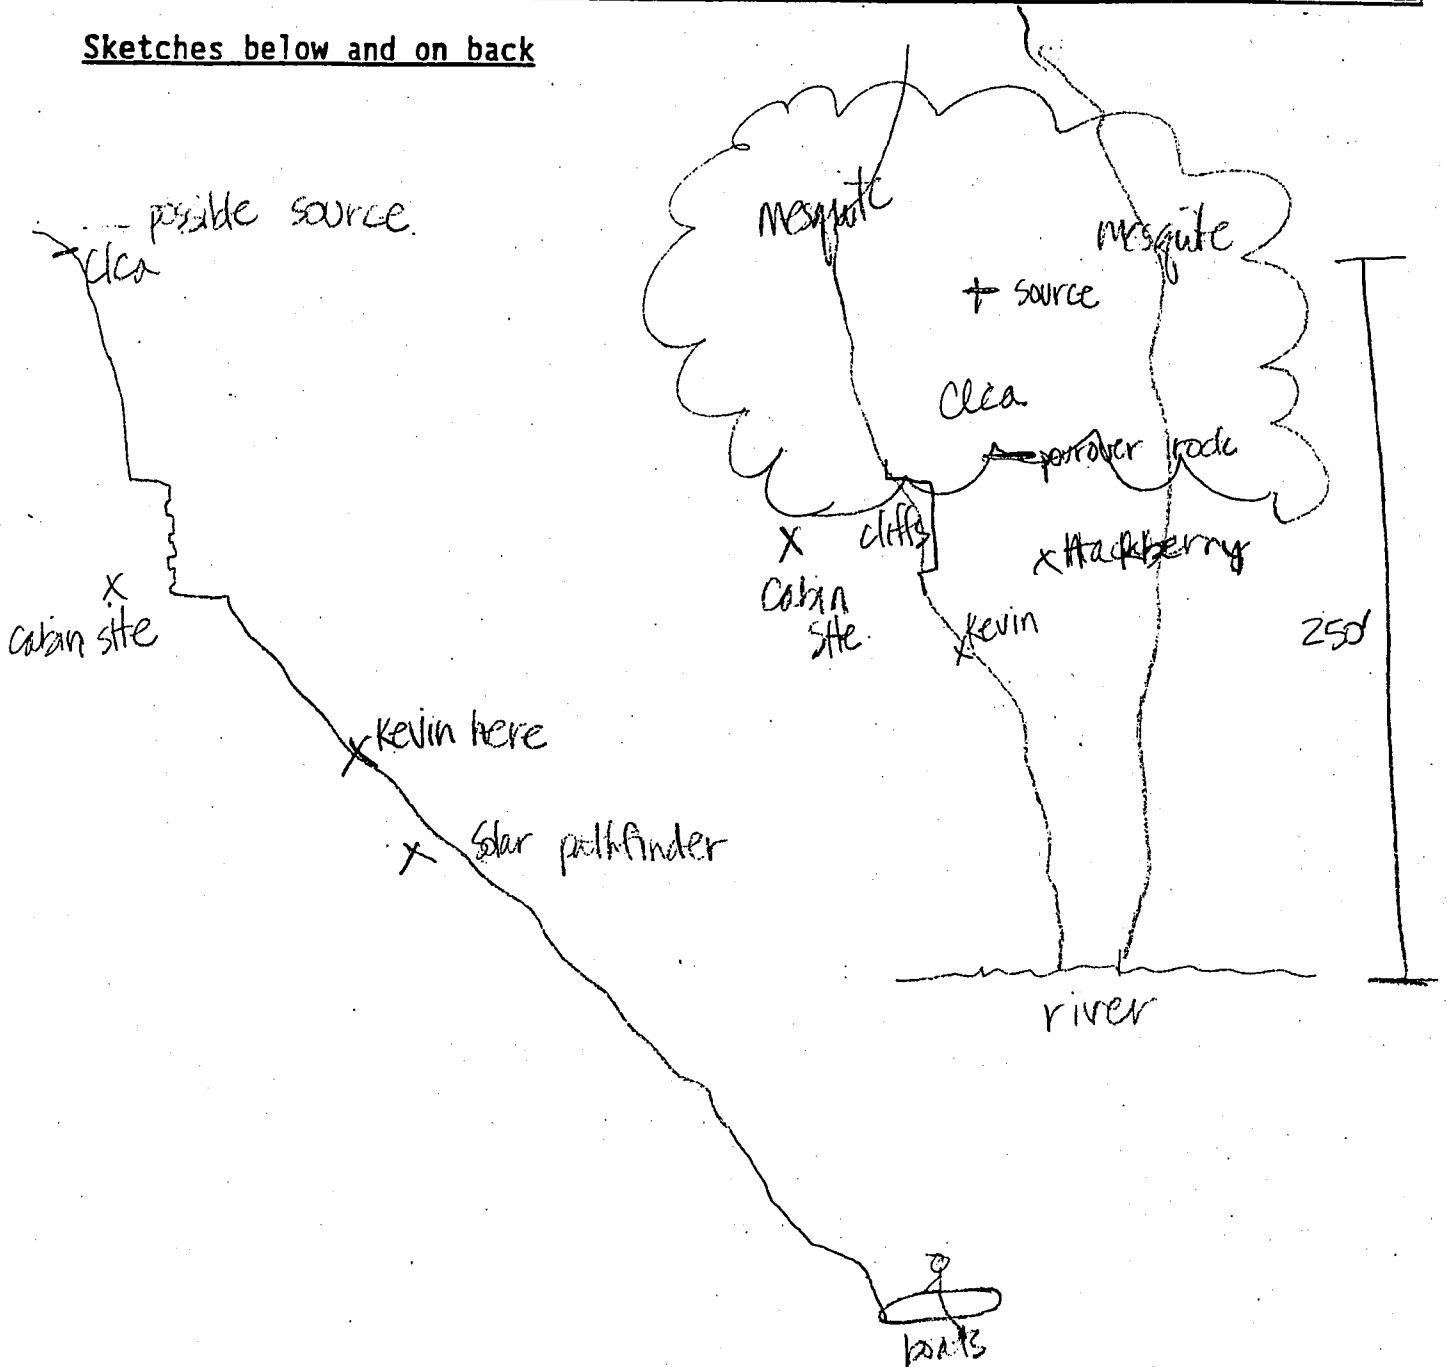 Sketches below and on back
possible source.
Clca
cabin site
Kevin here
Solar pathfinder
boats
mesquite
mesquite
+ source
Clca
pourover rock
cliffs
x Hackberry
x
Cabin
Site.
Kevin
250'
river